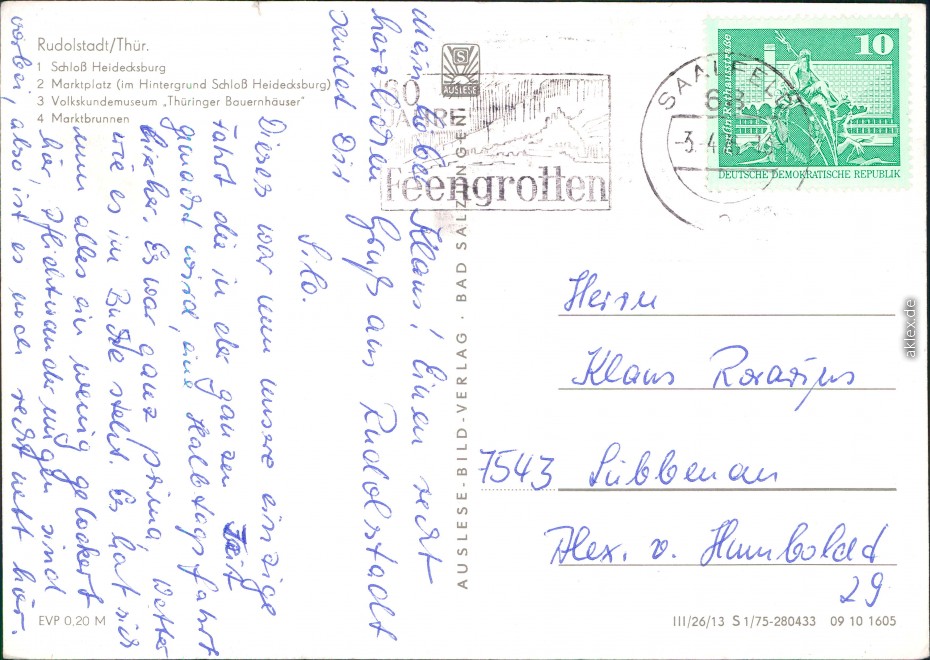 Rudolstadt/Thür.
1 Schloß Heidecksburg
2 Marktplatz (im Hintergrund Schloß Heidecksburg)
3 Volkskundemuseum „Thüringer Bauernhäuser"
4 Marktbrunnen
AUSLESE
JAHRE
Feengrotten
SAALFELD
10
DEUTSCHE DEMOKRATISCHE REPUBLIK
Mein lieber Klaus! Einen recht
herzlichen Gruß aus Rudolstadt
sendet Dir
Silo.
Dieses war nun unsere einzige
Fahrt die in der ganzen Zeit
gemacht wird, eine Halbtagsfahrt
hierher. Es war ganz prima, Wetter
wie es im Buche steht. Es hat sich
nun alles ein wenig gelockert
hier, Pflichtwanderungen sind
vorbei, also ist es noch recht nett hier.
AUSLESE-BILD-VERLAG · BAD SALZUNGEN
Herrn
Klaus
7543 Lübbenau
Alex. v. Humboldt
29
EVP 0,20 M
III/26/13 S 1/75-280433 09 10 1605
aklex.de